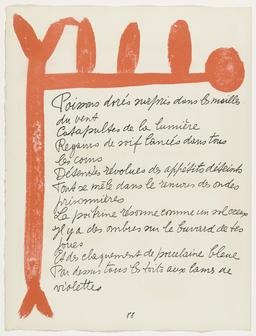 Poissons dorés surpris dans les mailles
du vent
Catapultes de la lumière
Regains de soif lancés dans tous
les coins
Détentes révolues des appétits déteints
Tout se mêle dans le remous des ondes
prisonnières
La poitrine résonne comme un sol creux
Il y a des ombres sur le buvard de tes
joues
Et des claquements de porcelaine bleue
Par dessus tous les toits aux lames de
violettes